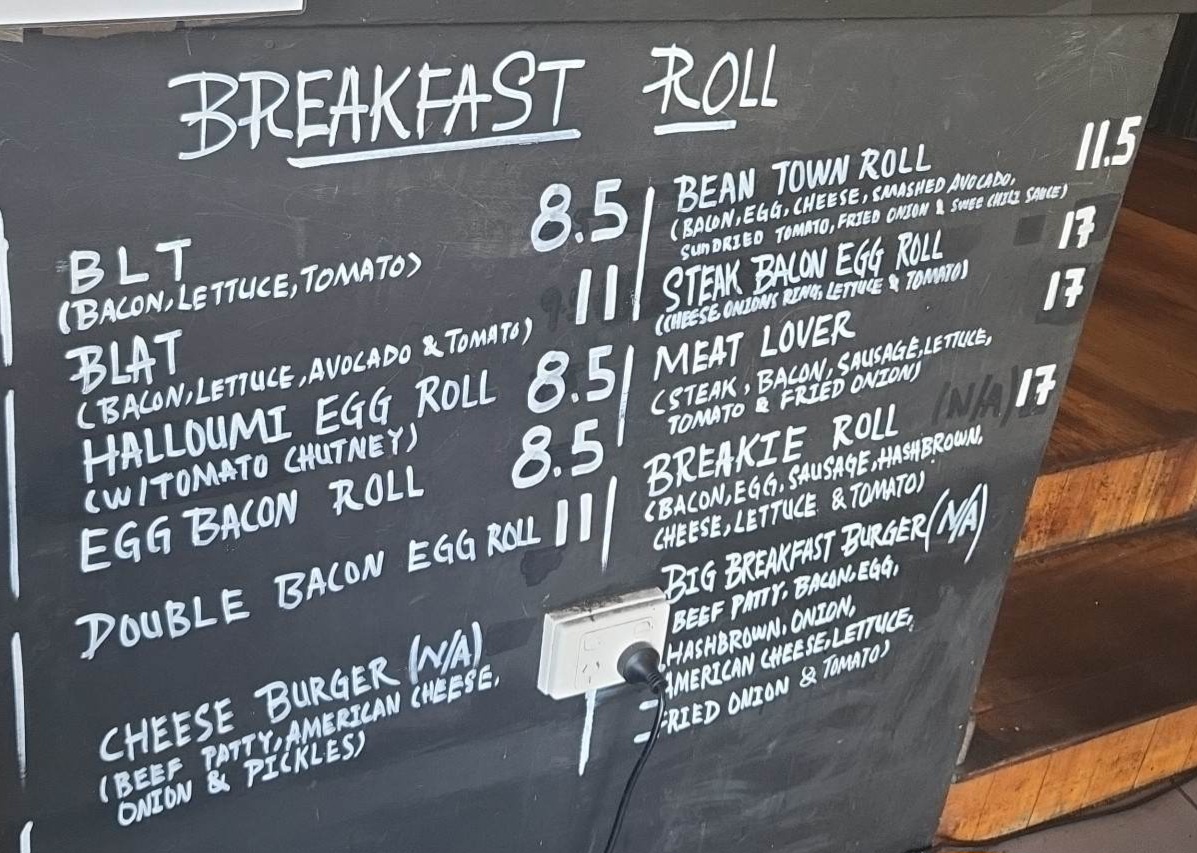 BREAKFAST ROLL
BLT 8.5
(BACON, LETTUCE, TOMATO)
BLAT 11
(BACON, LETTUCE, AVOCADO & TOMATO)
HALLOUMI EGG ROLL 8.5
(W/TOMATO CHUTNEY)
EGG BACON ROLL 8.5
DOUBLE BACON EGG ROLL 11
CHEESE BURGER (N/A)
(BEEF PATTY, AMERICAN CHEESE,
ONION & PICKLES)
BEAN TOWN ROLL 11.5
(BACON, EGG, CHEESE, SMASHED AVOCADO,
SUNDRIED TOMATO, FRIED ONION & SWEE CHILI SAUCE)
STEAK BACON EGG ROLL 17
(CHEESE, ONIONS RING, LETTUCE & TOMATO)
MEAT LOVER 17
(STEAK, BACON, SAUSAGE, LETTUCE,
TOMATO & FRIED ONION)
BREAKIE ROLL (N/A) 17
(BACON, EGG, SAUSAGE, HASHBROWN,
CHEESE, LETTUCE & TOMATO)
BIG BREAKFAST BURGER (N/A)
BEEF PATTY, BACON, EGG,
HASHBROWN, ONION,
AMERICAN CHEESE, LETTUCE,
FRIED ONION & TOMATO)